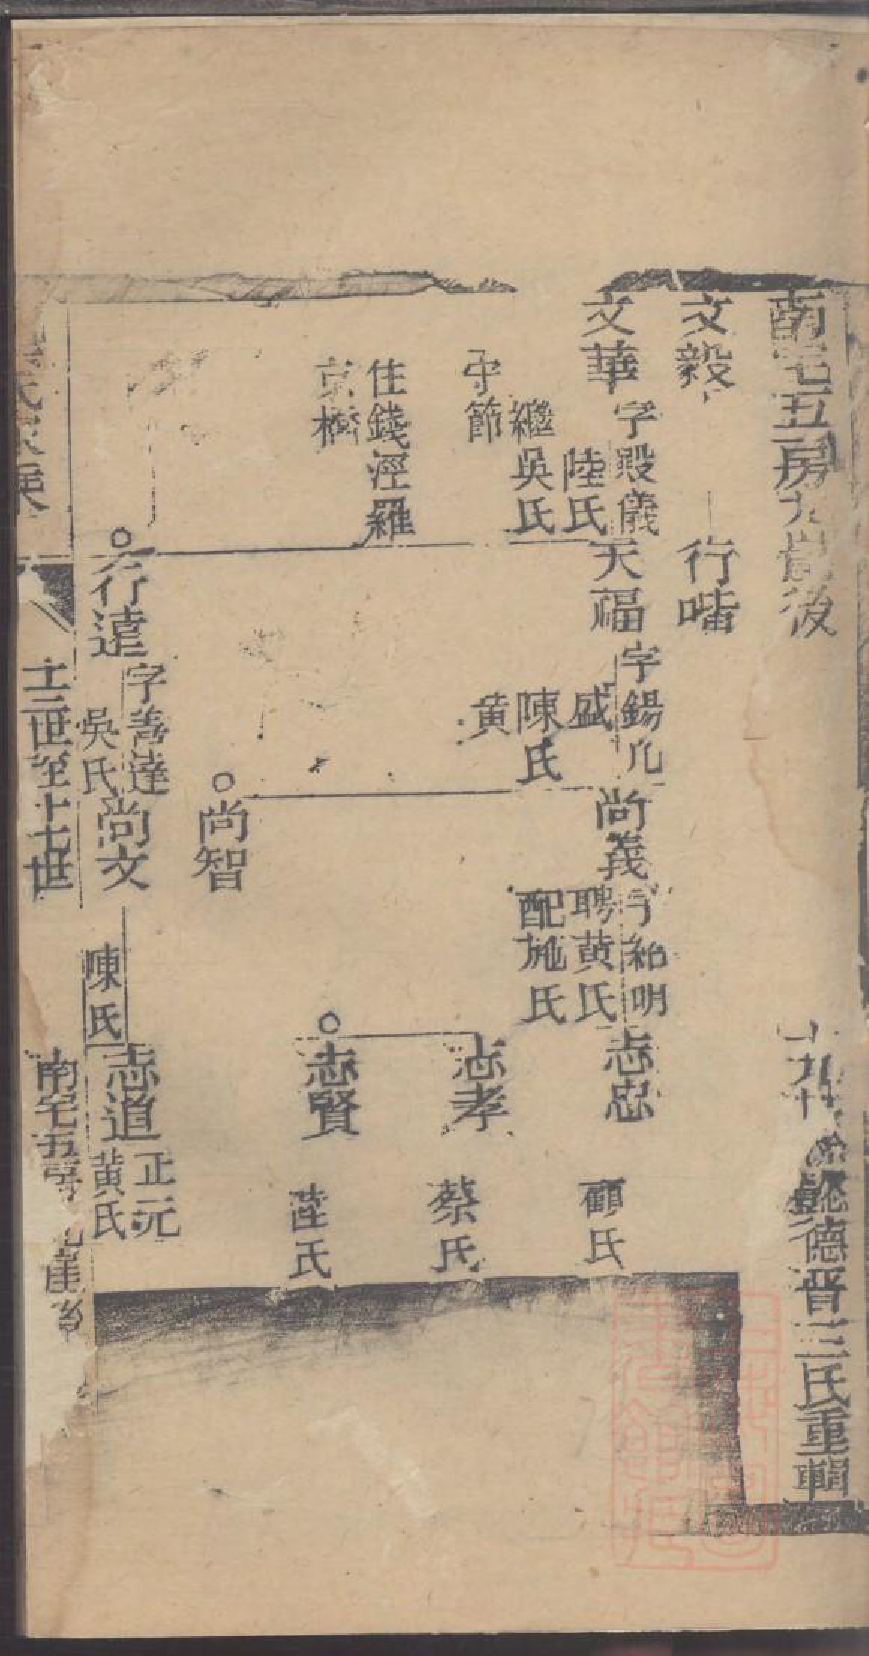 南宅五房九崗後
九世 德晋三氏重輯
文毅
行喈
文華
字殿儀
陸氏
繼吳氏
守節
住錢涇羅
京橋
天福
字錫九
盛
陳氏
黄
尚義
字紹明
聘黄氏
配施氏
志忠
顧氏
志孝
蔡氏
志賢
陸氏
尚智
行達
字善達
吳氏
尚文
陳氏
志道
正元
黄氏
氏家乘
十三世至十七世
南宅五房